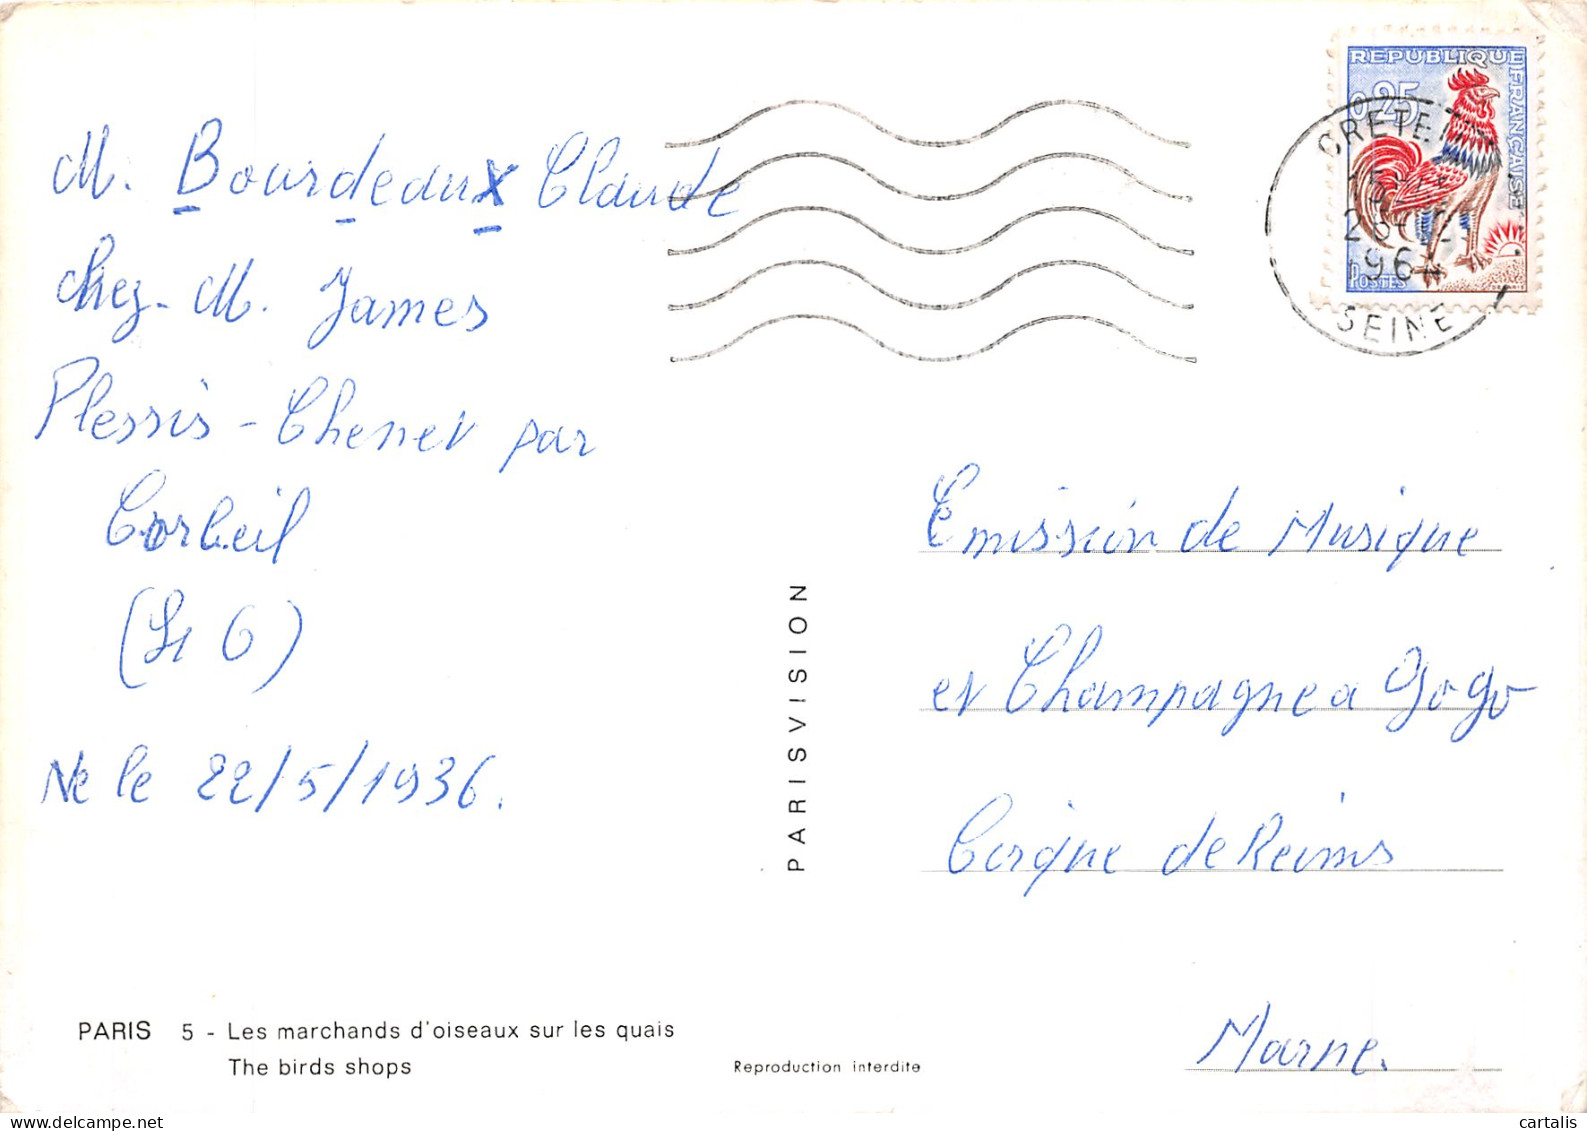 M. Bourdeaux Claude
chez M. James
Plessis-Chenet par
Corbeil
(S et O)
Né le 22/5/1936.
PARIS 5 - Les marchands d'oiseaux sur les quais
The birds shops
Reproduction interdite
PARISVISION
REPUBLIQUE FRANÇAISE
0,25
POSTES
CRETEIL
1964
SEINE
Emission de Musique
et Champagne a gogo
Cirque de Reims
Marne.
cartalis